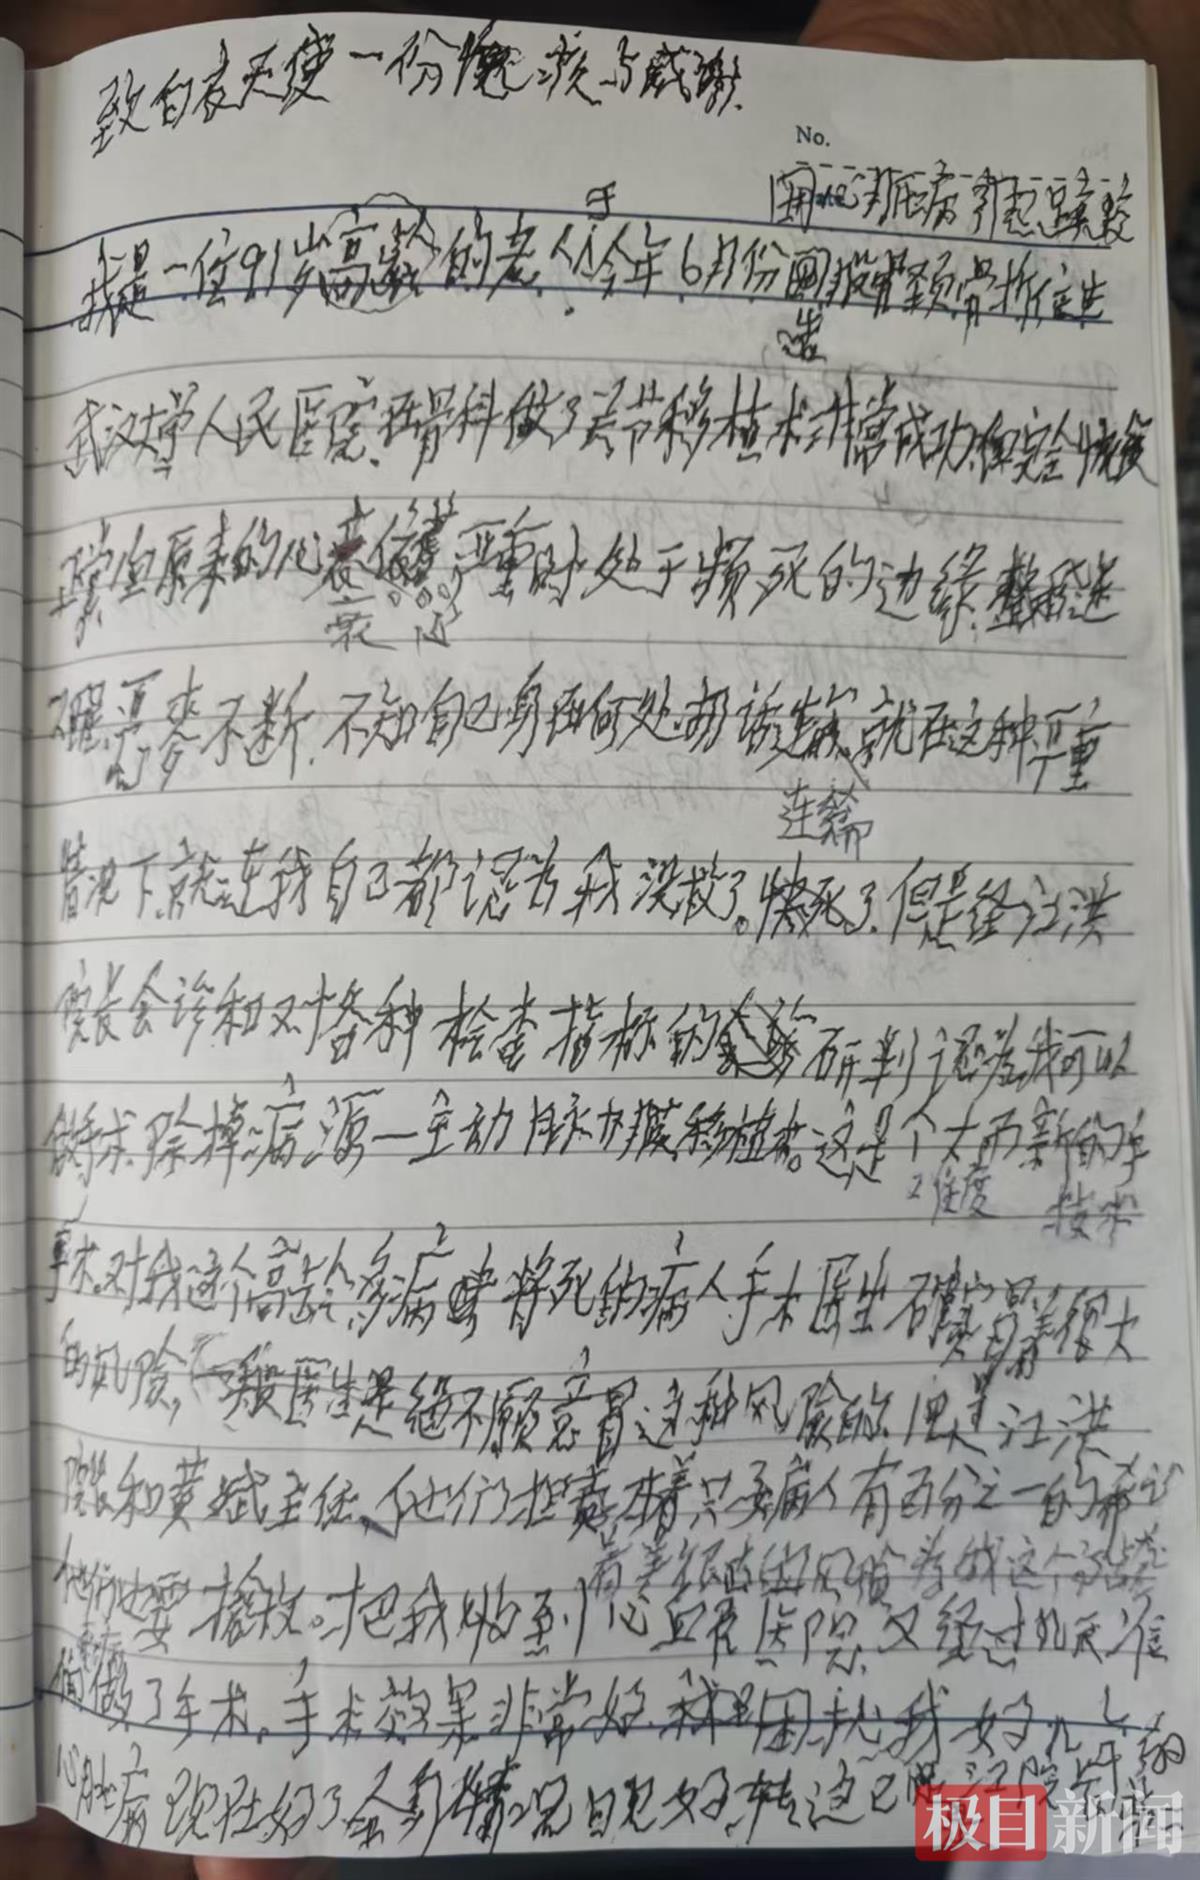 致白衣天使一份愧疚与感谢
No.
因心脏病引起
我是一位91岁高龄的老人。于今年6月份因股骨颈骨折住进
武汉大学人民医院,在骨科做了关节移植术非常成功,但完全恢复
正常但原来的心衰 严重时处于频死的边缘,整天迷
衰
不醒,恶梦不断,不知自己身在何处,胡话连篇,就在这种严重
连篇
情况下,就连我自己都认为我没救了。快死了,但是经江洪
院长会诊和对各种检查指标的 研判认为我可以
做手术,除掉病源—主动脉办膜移植术。这是个大而新的手
难度 技术
术。对我这个高龄多病 将死的病人手术医生 冒着很大
的风险,一般医生是绝不愿意冒这种风险的,但是江洪
院长和黄斌主任,他们 着只要病人有百分之一的希望
冒着很大的风险为我这个高龄
他们也要抢救。才把我收到心血管医院,又经过
做了手术。手术效果非常好, 困扰我好几年的
心脏病现在好了, 情况日见好转这已 江院长
极目新闻